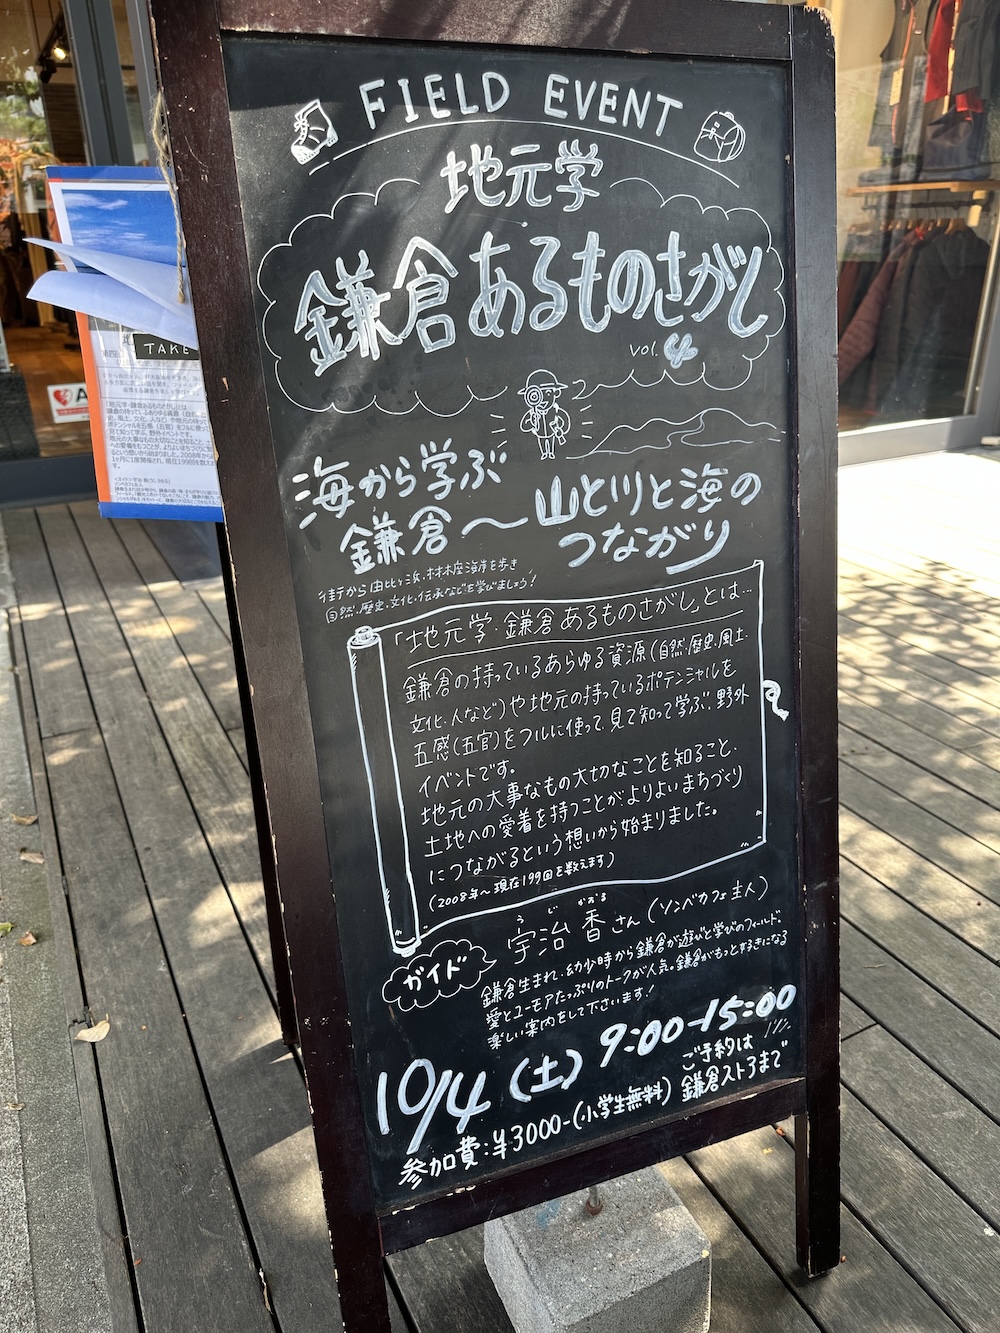 FIELD EVENT
地元学
鎌倉あるものさがし
vol.4
海から学ぶ
鎌倉〜山と川と海の
つながり
街から由比ヶ浜、材木座海岸を歩き
自然・歴史・文化・伝承などを学びましょう!
「地元学・鎌倉あるものさがし」とは…
鎌倉の持っているあらゆる資源(自然・歴史・風土・
文化・人など)や地元の持っているポテンシャルを
五感(五官)をフルに使って、見て知って学ぶ、野外
イベントです。
地元の大事なもの大切なことを知ること、
土地への愛着を持つことがよりよいまちづくり
につながるという想いから始まりました。
(2008年〜現在199回を数えます)
ガイド
うじ かおる
宇治 香さん(ソンベカフェ主人)
鎌倉生まれ、幼少時から鎌倉が遊びと学びのフィールド。
愛とユーモアたっぷりのトークが人気。鎌倉がもっと好きになる
楽しい案内をして下さいます!
10/4(土) 9:00-15:00
参加費:¥3000-(小学生無料)
ご予約は
鎌倉ストアまで
TAKE